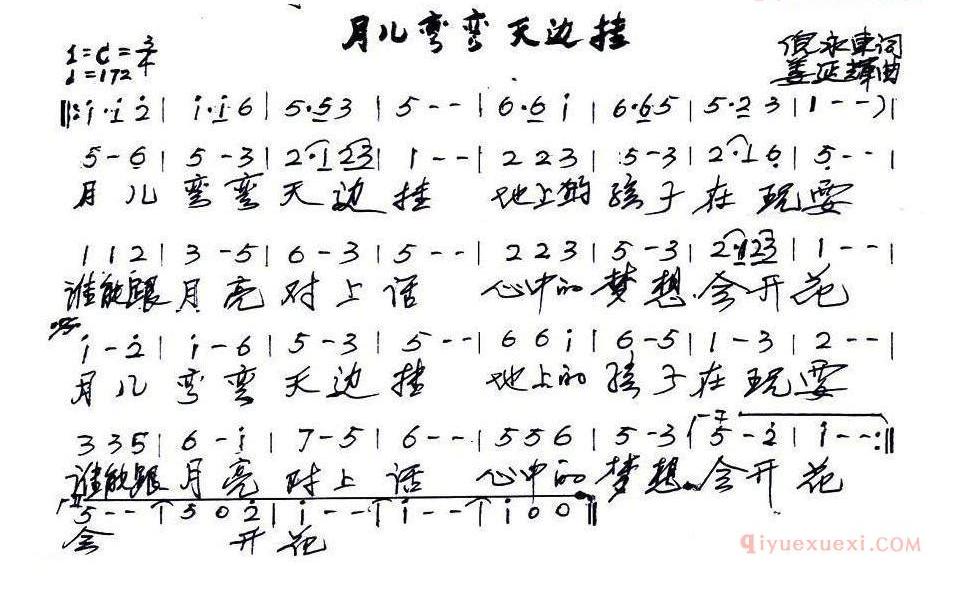 月儿弯弯天边挂
1=C=3/4
♩=172
倪永东词
姜延辉曲
‖: i·i 2̇ | i·i 6 | 5·5 3 | 5 - - | 6·6 i | 6·6 5 | 5·2 3 | 1 - - )
5 - 6 | 5 - 3 | 2·1 2 3 | 1 - - | 2 2 3 | 5 - 3 | 2·1 6̣ | 5̣ - - |
月儿弯弯天边挂 地上的孩子在玩耍
1 1 2 | 3 - 5 | 6 - 3 | 5 - - | 2 2 3 | 5 - 3 | 2·1 2 3 | 1 - - |
谁能跟月亮对上话 心中的梦想会开花
i - 2̇ | i - 6 | 5 - 3 | 5 - - | 6 6 i | 6 - 5 | 1 - 3 | 2 - - |
月儿弯弯天边挂 地上的孩子在玩耍
3 3 5 | 6 - i | 7 - 5 | 6 - - | 5 5 6 | 5 - 3 | 5 - 2̇ | i - - :‖
谁能跟月亮对上话 心中的梦想会开花
5 - - | 5 0 2̇ | i - - | i - - | i 0 0 ‖
会 开花
qiyuexuexi.COM